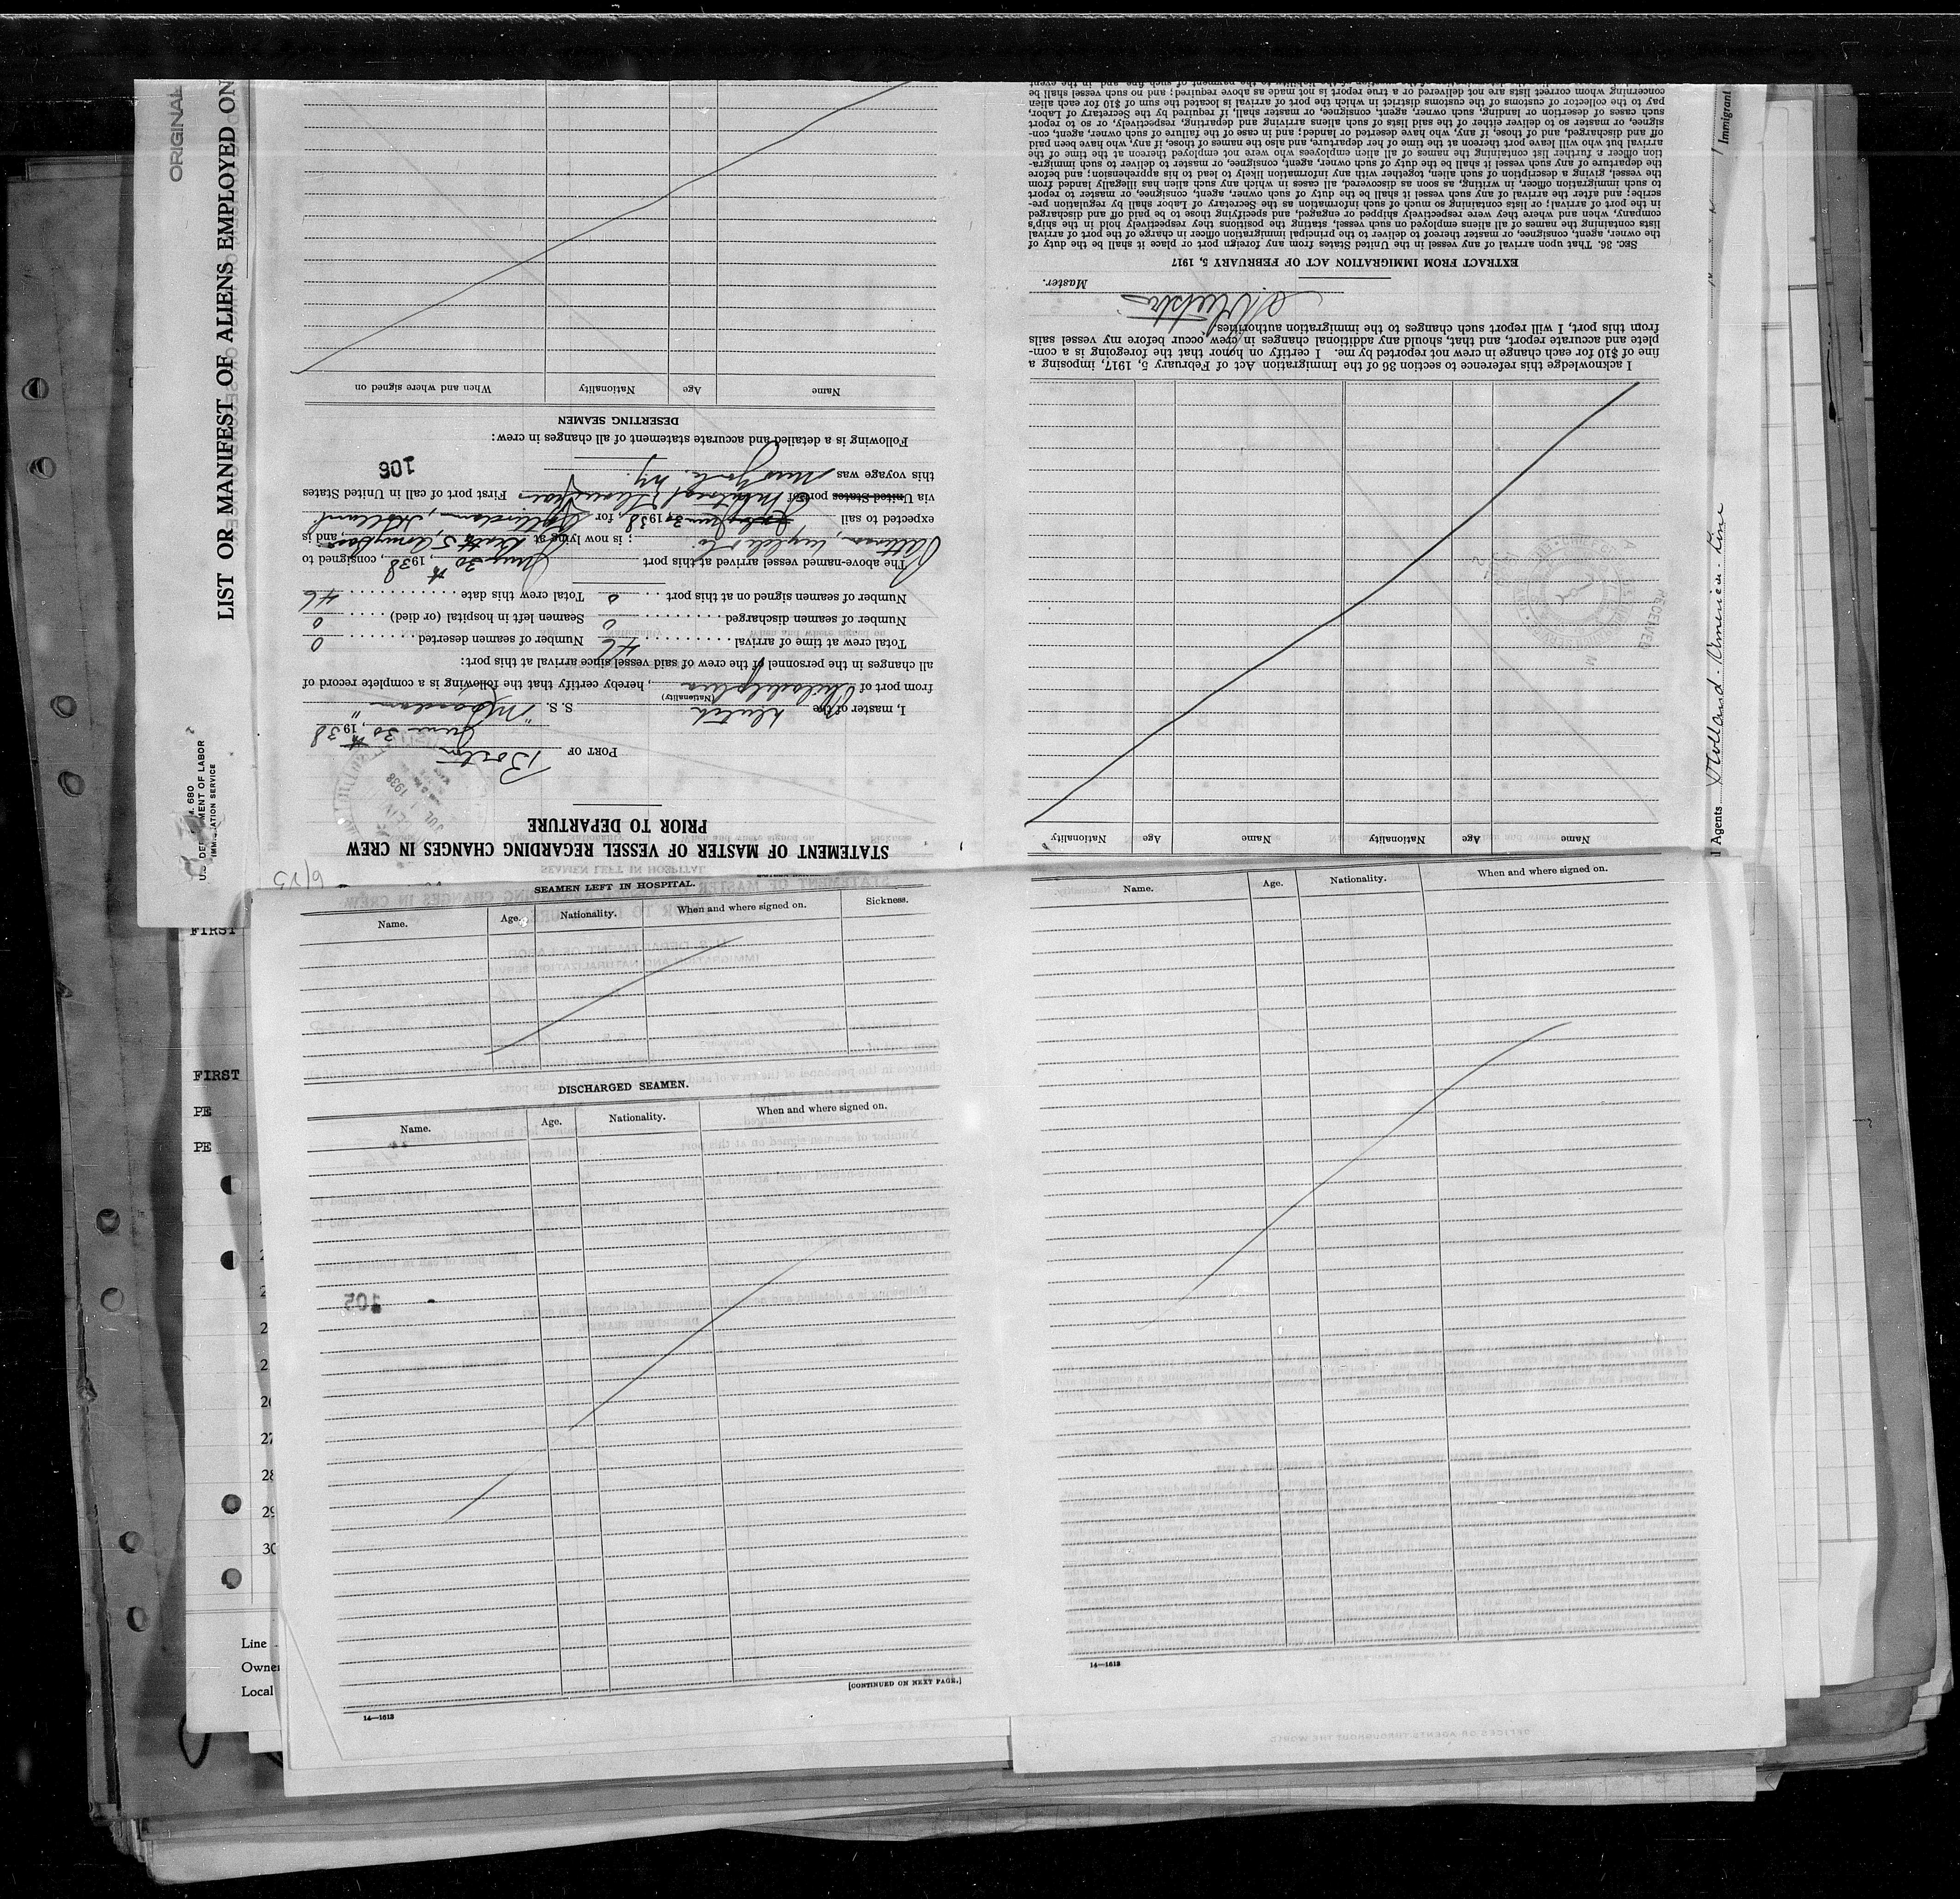 ORIGINAL
LIST OR MANIFEST OF ALIENS EMPLOYED ON
DEPARTMENT OF LABOR
IMMIGRATION SERVICE
STATEMENT OF MASTER OF VESSEL REGARDING CHANGES IN CREW
PRIOR TO DEPARTURE
PORT OF Boston
June 30th, 1938
I, master of the Dutch S. S.
(Nationality)
from port of Philadelphia, hereby certify that the following is a complete record of
all changes in the personnel of the crew of said vessel since arrival at this port:
Total crew at time of arrival 46 Number of seamen deserted 0
Number of seamen discharged 0 Seamen left in hospital (or died) 0
Number of seamen signed on at this port 0 Total crew this date 46
The above-named vessel arrived at this port 30th, 1938, consigned to
; is now lying at Berth 5, Army Base, and is
expected to sail June 30 1938, for Rotterdam, Holland
via United States port of First port of call in United States
this voyage was New York, NY.
106
Following is a detailed and accurate statement of all changes in crew:
DESERTING SEAMEN
Name Age Nationality When and where signed on
Name Age Nationality Name Age Nationality
RECEIVED
I acknowledge this reference to section 36 of the Immigration Act of February 5, 1917, imposing a
fine of $10 for each change in crew not reported by me. I certify on honor that the foregoing is a com-
plete and accurate report, and that, should any additional changes in crew occur before my vessel sails
from this port, I will report such changes to the immigration authorities.
Master.
EXTRACT FROM IMMIGRATION ACT OF FEBRUARY 5, 1917
SEC. 36. That upon arrival of any vessel in the United States from any foreign port or place it shall be the duty of
the owner, agent, consignee, or master thereof to deliver to the principal immigration officer in charge of the port of arrival
lists containing the names of all aliens employed on such vessel, stating the positions they respectively hold in the ship's
company, when and where they were respectively shipped or engaged, and specifying those to be paid off and discharged
in the port of arrival; or lists containing so much of such information as the Secretary of Labor shall by regulation pre-
scribe; and after the arrival of any such vessel it shall be the duty of such owner, agent, consignee, or master to report
to such immigration officer, in writing, as soon as discovered, all cases in which any such alien has illegally landed from
the vessel, giving a description of such alien, together with any information likely to lead to his apprehension; and before
the departure of any such vessel it shall be the duty of such owner, agent, consignee, or master to deliver to such immigra-
tion officer a further list containing the names of all alien employees who were not employed thereon at the time of the
arrival but who will leave port thereon at the time of her departure, and also the names of those, if any, who have been paid
off and discharged, and of those, if any, who have deserted or landed; and in case of the failure of such owner, agent, con-
signee, or master so to deliver either of the said lists of such aliens arriving and departing, respectively, or so to report
such cases of desertion or landing, such owner, agent, consignee, or master shall, if required by the Secretary of Labor,
pay to the collector of customs of the customs district in which the port of arrival is located the sum of $10 for each alien
concerning whom correct lists are not delivered or a true report is not made as above required; and no such vessel shall be
Immigrant
Agents Holland-America-Line
SEAMEN LEFT IN HOSPITAL.
Name. Age. Nationality. When and where signed on. Sickness.
DISCHARGED SEAMEN.
Name. Age. Nationality. When and where signed on.
105
[CONTINUED ON NEXT PAGE.]
14—1613
Name. Age. Nationality. When and where signed on.
14—1613
FIRST
FIRST
PE
PE
27
28
29
30
Line
Owner
Local